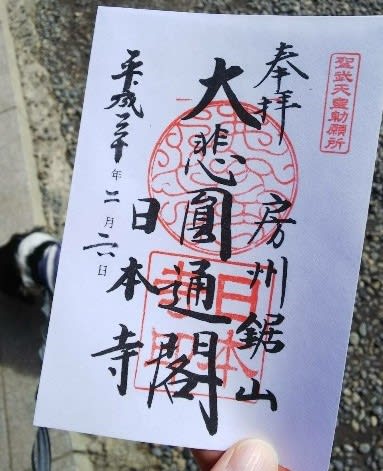 聖武天皇勅願所
奉拝
房州鋸山
大悲圓通閣
日本寺
平成三十年二月六日
日本
寺印